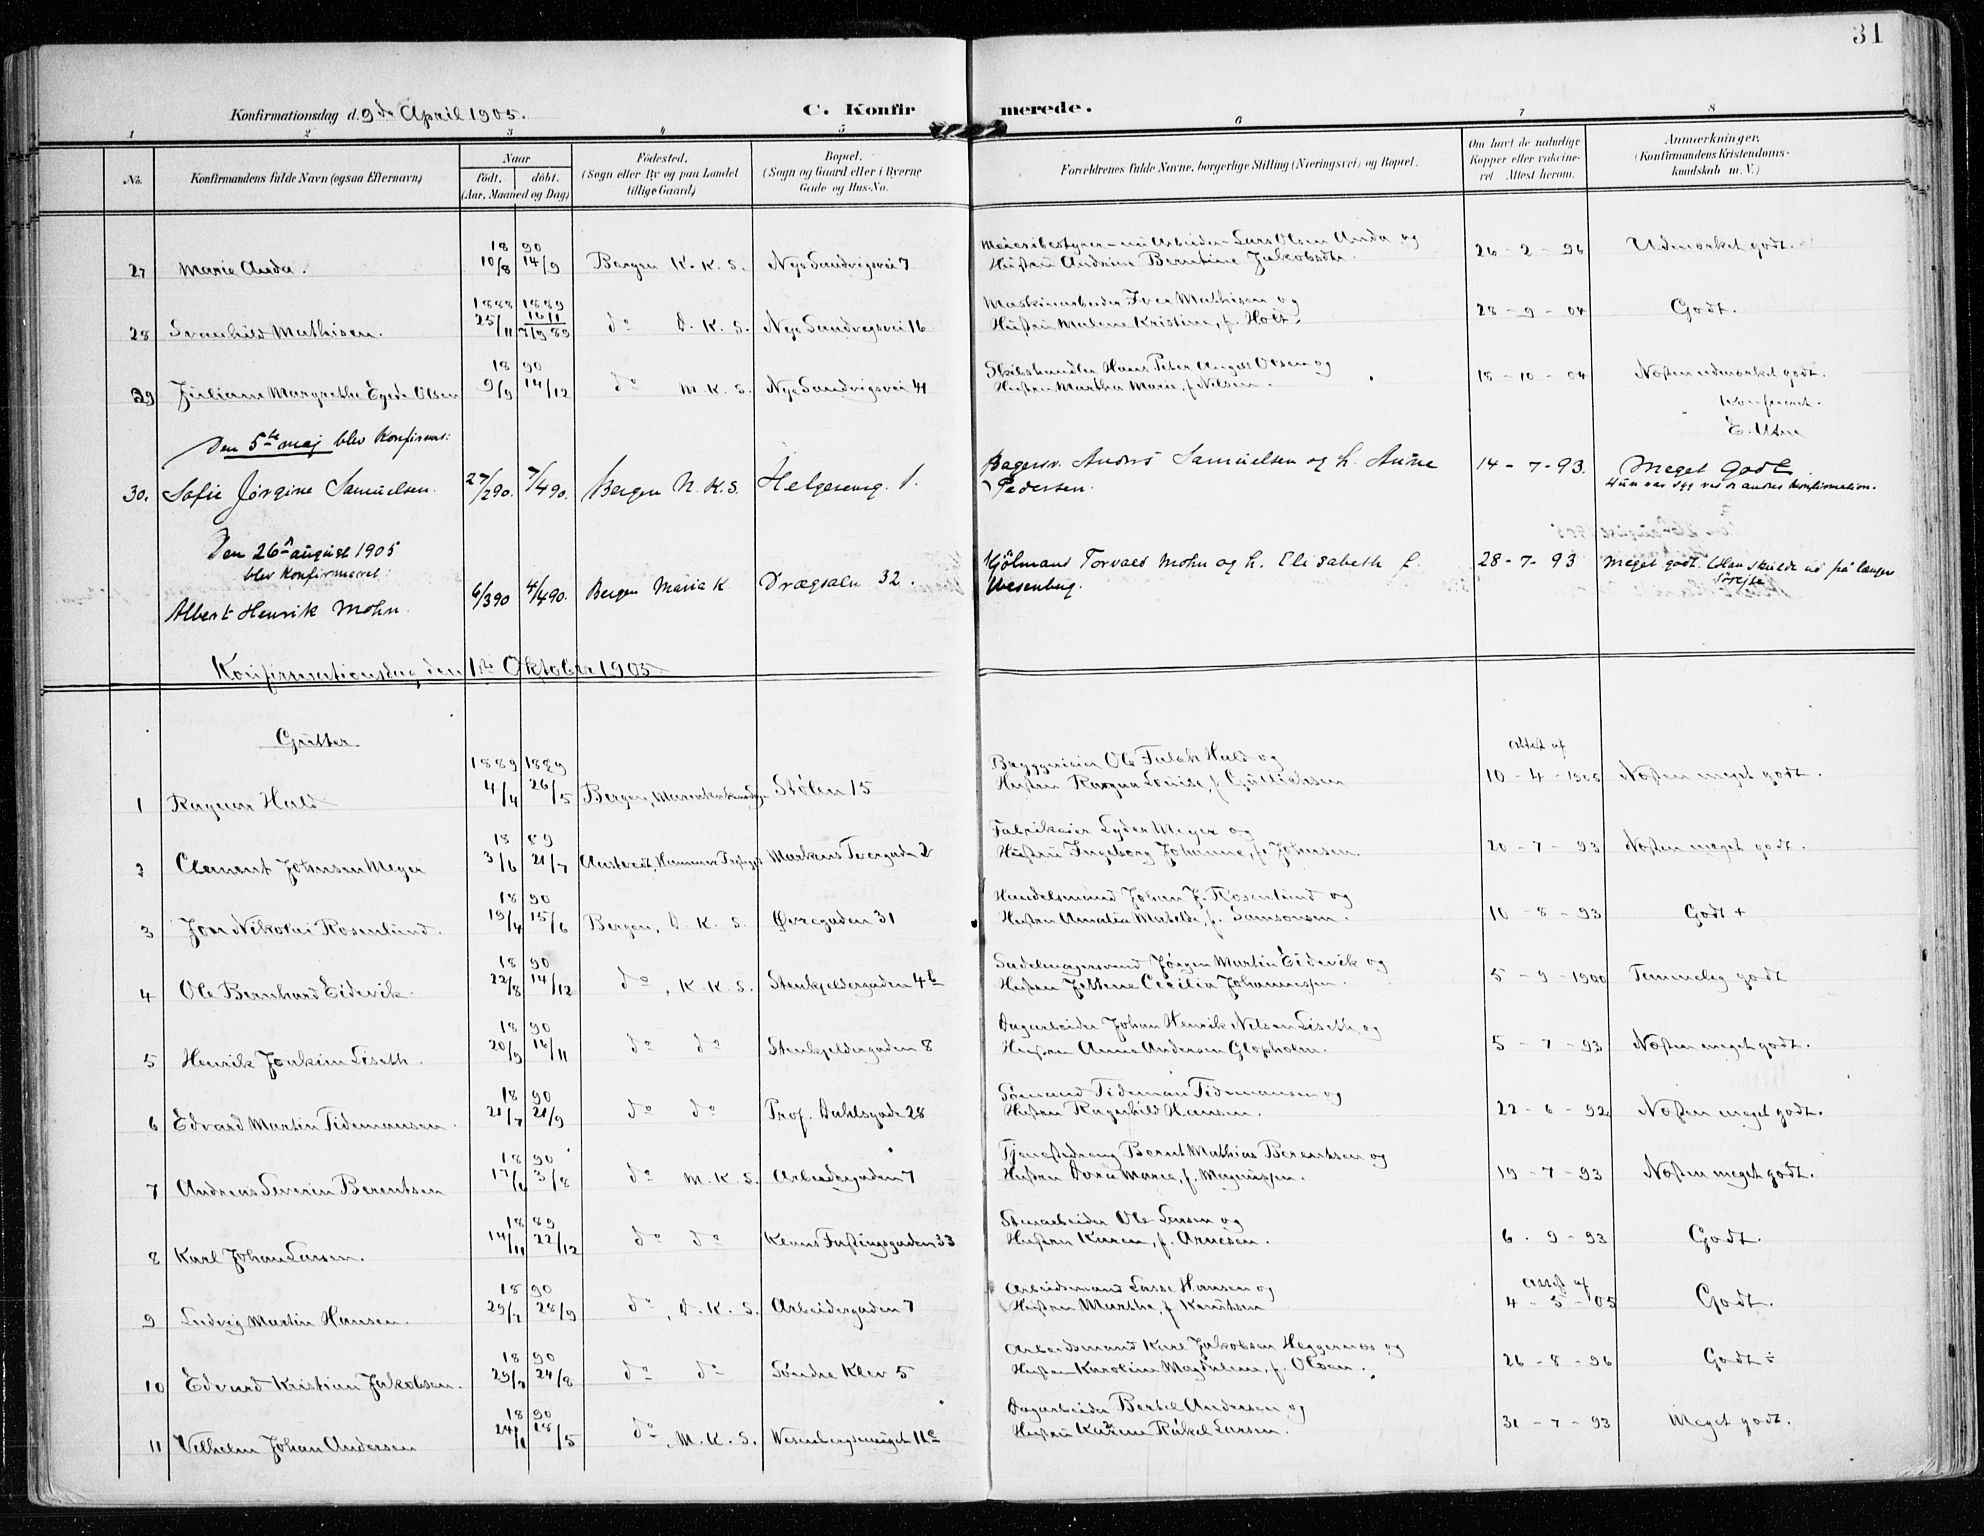 31
Konfirmationsdag d. 9de April 1905.
C. Konfirmerede.
1 2 3 4 5 6 7 8
No.
Konfirmandens fulde Navn (ogsaa Efternavn)
Naar
født. døbt.
(Aar, Maaned og Dag)
Fødested.
(Sogn eller By og paa Landet
tillige Gaard)
Bopæl.
(Sogn og Gaard eller i Byerne
Gade og Hus-No.
Forældrenes fulde Navne, borgerlige Stilling (Næringsvei) og Bopæl.
Om havt de naturlige
Kopper eller vaksine-
ret Attest herom.
Anmerkninger.
(Konfirmandens Kristendoms-
kundskab m. V.)
18 90
Meieribestyrer - nu Arbeider - Lars Olsen Anda og
27 Marie Anda. 10/8 14/9 Bergen K. K. S. Nye Sandvigsvei 7 Hustru Andrine Berntine Jakobsdtr. 26-2-96 Udmærket godt.
1888 1889
Maskinarbeider Iver Mathisen og
28 Svanhild Mathisen. 25/11 16/1 7/9 89 do D. K. S. Nye Sandvigsvei 16 Hustru Malene Kristine, f. Holt. 28-9-04 Godt.
18 90
Skibshandler Hans Peter Angell Olsen og
29 Juliane Margrethe Egede Olsen 9/9 14/12 do M. K. S. Nye Sandvigsvei 41 Hustru Martha Marie, f. Nilsen. 18-10-04 Næsten udmærket godt.
Konfereret.
E. Utne
Den 5te maj blev Konfirmert:
30. Sofie Jørgine Samuelsen. 27/2 90. 7/4 90. Bergen N. K. S. Helgesensg. 1. Bagersv. Andrs Samuelsen og h. Anne 14-7-93. Meget godt.
Pedersen. Hun var syg ved de andres Konfirmation.
Den 26de august 1905
blev Konfirmeret:
Albert Henrik Mohn. 6/3 90 4/4 90. Bergen Maria K. Drægsalm 32. Kjølmand Torvald Mohn og h. Elisabeth f. 28-7-93 Meget godt. (Han skulde ud på længre
Wesenberg. Sørejse
Konfirmationsdag den 1ste Oktober 1905
Gutter
1889 1889
Bryggerieier Ole Falch Hald og Attest af
1 Ragnar Hald 4/4 26/5 Bergen, Mariakirkesogn Stølen 15 Hustru Ragna Louise, f. Gulliksen 10-4-1905 Næsten meget godt.
18 89
Fabrikeier Lyder Meyer og
2 Clement Johnsen Meyer 3/6 21/7 Markens Tvergaden 2 Hustru Ingeborg Johanne, f. Johnsen. 20-7-93 Næsten meget godt.
18 90
Handelsmand Johan J. Rosenlund og
3 Jon Nikolai Rosenlund. 19/4 15/6 Bergen, D. K. S. Øvregaden 31 Hustru Amalia Mathilde, f. Samsonsen. 10-8-93 Godt +
18 90
Sadelmagersvend Jørgen Martin Eidevik og
4 Ole Bernhard Eidevik 22/8 14/12 do, K. K. S. Stenkjeldergaden 4b Hustru Jettene Cecilia Johannessen. 5-9-1900 Temmelig godt
18 90
Dagarbeider Johan Henrik Nilsen Liseth og
5 Henrik Joakim Liseth. 20/9 16/11 do do Stenkjeldergaden 8 Hustru Anne Andersen Glopholm. 5-7-93 Næsten meget godt.
18 90
Sømand Tideman Tidemansen og
6 Edvard Martin Tidemansen. 21/7 21/9 do do Prof. Dahlsgade 28 Hustru Ragnhild Hansen. 22-6-92 Næsten meget godt.
18 90
Tjenestedreng Bernt Mathias Berentsen og
7 Andreas Severin Berentsen 17/6 3/8 do M. K. S. Arbeidergaden 7 Hustru Dora Marie, f. Magnussen. 19-7-93 Næsten meget godt.
18 89
Stenarbeider Ole Larsen og
8 Karl Johan Larsen. 14/11 22/12 do do Klaus Fastingsgaden 33 Hustru Karen, f. Arnesen. 6-9-93 Godt.
18 90
Arbeidsmand Lasse Hansen og Attest af
9 Ludvig Martin Hansen. 29/7 28/9 do, D. K. S. Arbeidergaden 7 Hustru Marthe, f. Knudtsen 4-5-05 Godt.
18 90
Arbeidsmand Karl Jakobsen Heggernæs og
10 Edvard Kristian Jakobsen. 29/7 24/8 do do Søndre Klev 5 Hustru Karoline Magdalene, f. Olsen. 26-8-96 Godt ÷
18 90
Dagarbeider Bertel Andersen og
11 Vilhelm Johan Andersen 24/1 18/5 do, M. K. S. Wesenbergsmuget 11c Hustru Karen Rakel Larsen. 31-7-93 Meget godt.